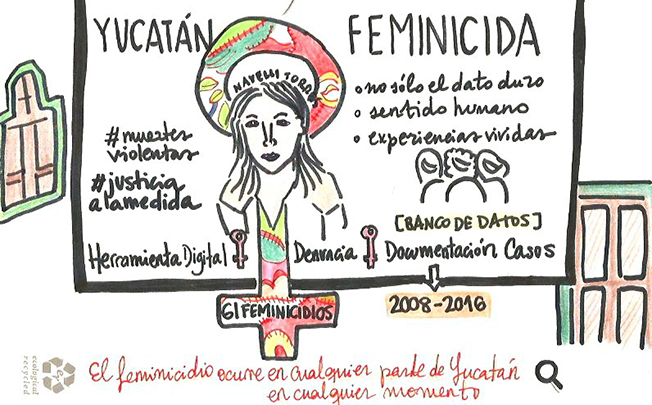 YUCATÁN FEMINICIDA
NAYELLI TORRES
#muertes
violentas
#justicia
alamedida
• no sólo el dato duro
• sentido humano
• experiencias vividas
[BANCO DE DATOS]
Herramienta Digital Denuncia Documentación Casos
61 FEMINICIDIOS
2008-2016
El feminicidio ocurre en cualquier parte de Yucatán
en cualquier momento
ecological
recycled